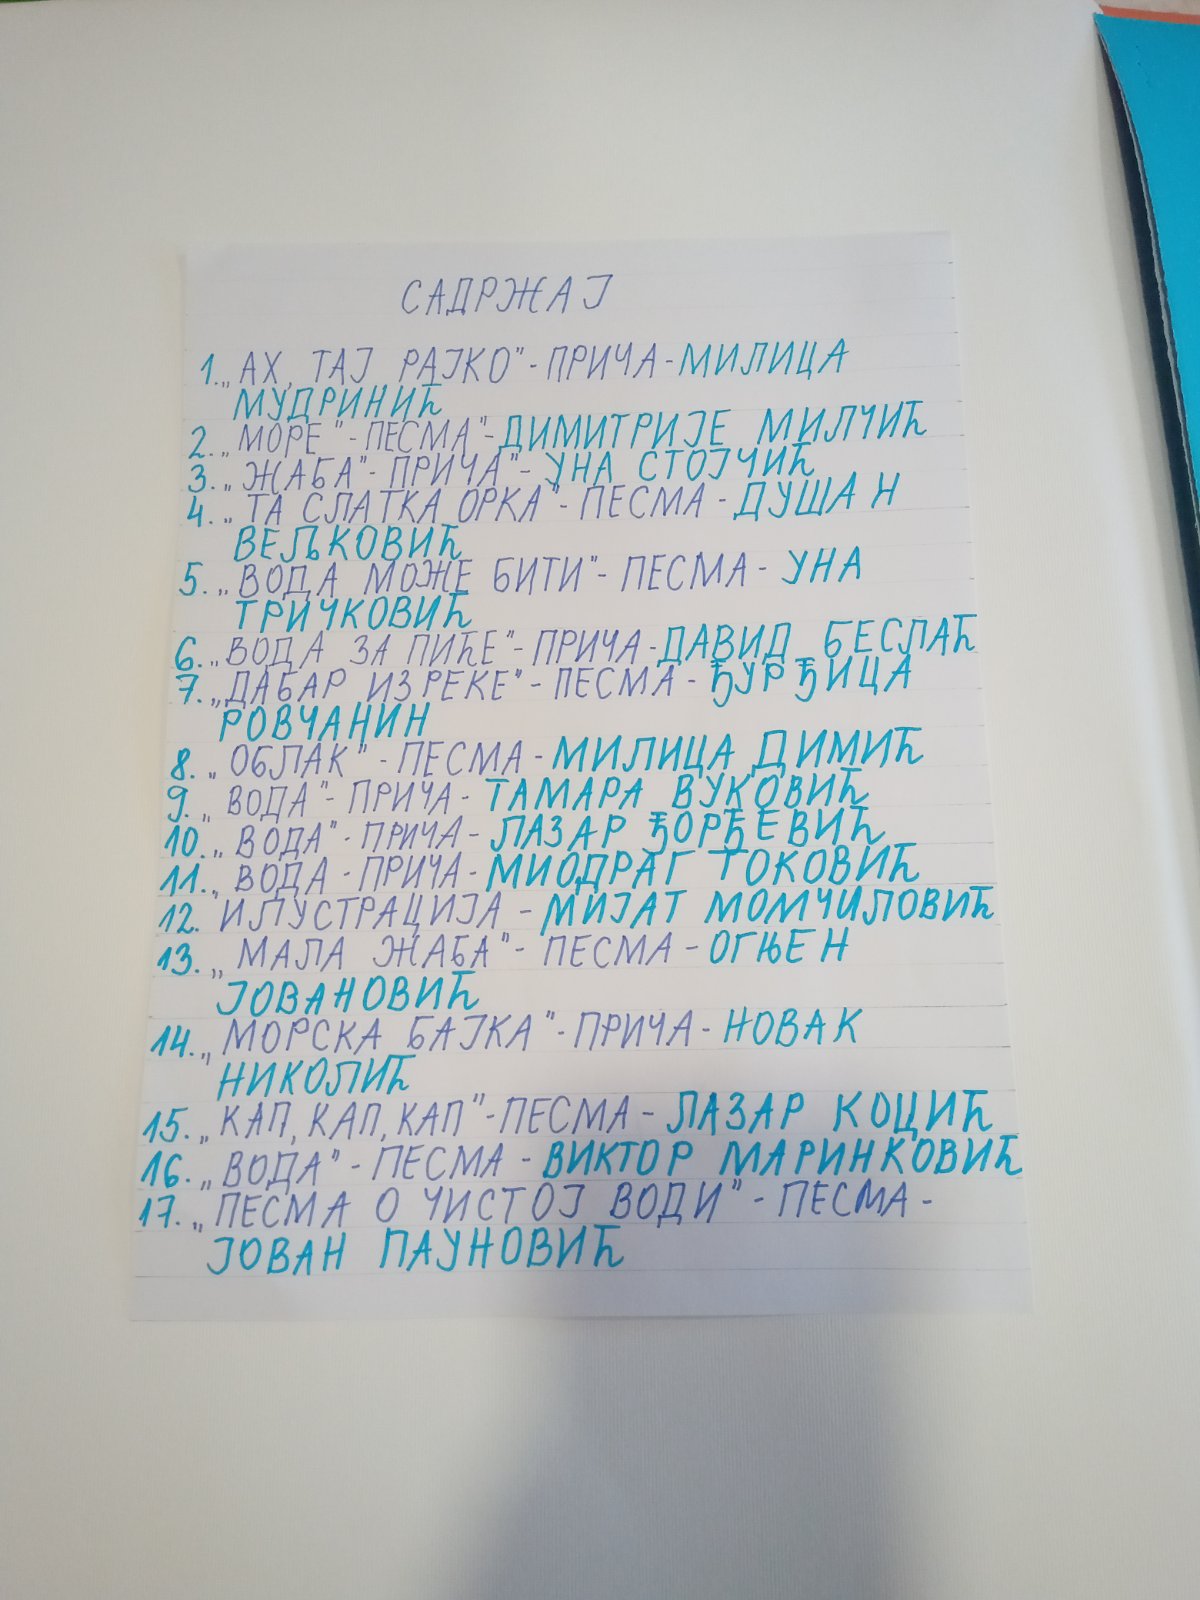 САДРЖАЈ
1. „АХ, ТАЈ РАЈКО"-ПРИЧА-МИЛИЦА
МУДРИНИЋ
2. „МОРЕ"-ПЕСМА"-ДИМИТРИЈЕ МИЛЧИЋ
3. „ЖАБА"-ПРИЧА"-УНА СТОЈЧИЋ
4. „ТА СЛАТКА ОРКА"-ПЕСМА-ДУШАН
ВЕЉКОВИЋ
5. „ВОДА МОЖЕ БИТИ"-ПЕСМА-УНА
ТРИЧКОВИЋ
6. „ВОДА ЗА ПИЋЕ"-ПРИЧА-ДАВИД БЕСЛАЋ
7. „ДАБАР ИЗ РЕКЕ"-ПЕСМА-ЂУРЂИЦА
РОВЧАНИН
8. „ОБЛАК"-ПЕСМА-МИЛИЦА ДИМИЋ
9. „ВОДА"-ПРИЧА-ТАМАРА ВУКОВИЋ
10. „ВОДА"-ПРИЧА-ЛАЗАР ЂОРЂЕВИЋ
11. „ВОДА-ПРИЧА-МИОДРАГ ТОКОВИЋ
12. ИЛУСТРАЦИЈА-МИЈАТ МОМЧИЛОВИЋ
13. „МАЛА ЖАБА"-ПЕСМА-ОГЊЕН
ЈОВАНОВИЋ
14. „МОРСКА БАЈКА"-ПРИЧА-НОВАК
НИКОЛИЋ
15. „КАП, КАП, КАП"-ПЕСМА-ЛАЗАР КОЦИЋ
16. „ВОДА"-ПЕСМА-ВИКТОР МАРИНКОВИЋ
17. „ПЕСМА О ЧИСТОЈ ВОДИ"-ПЕСМА-
ЈОВАН ПАУНОВИЋ